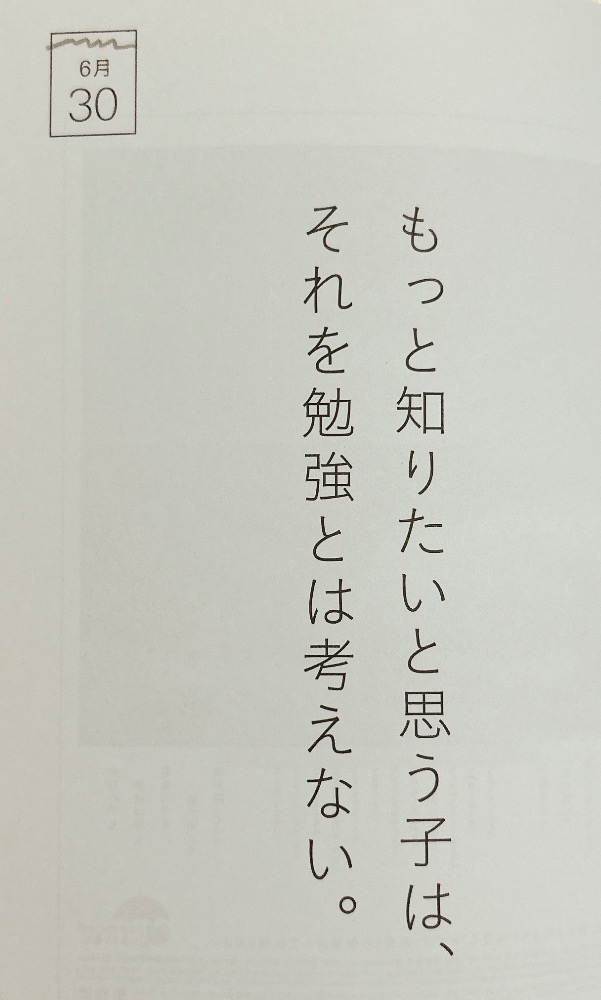 6月
30
もっと知りたいと思う子は、
それを勉強とは考えない。